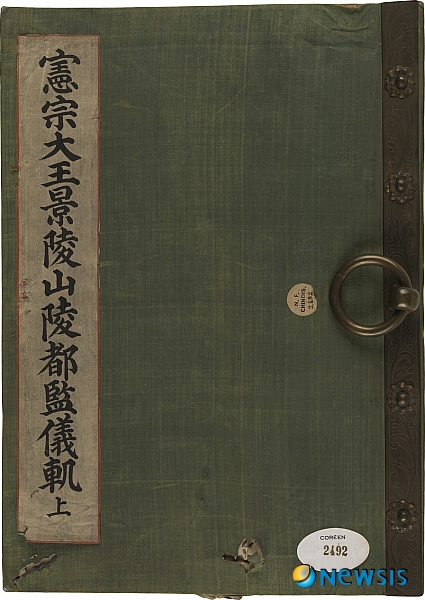 憲宗大王景陵山陵都監儀軌上
N. F.
CHINOIS.
COREEN
2492
newsis